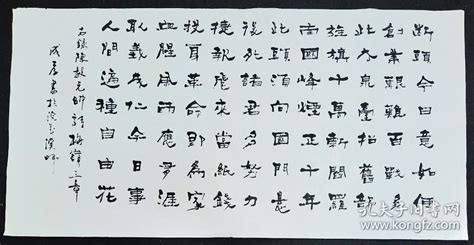 斷頭今日意如何
創業艱難百戰多
此去泉臺招舊部
旌旗十萬斬閻羅
南國烽煙正十年
此頭須向國門懸
後死諸君多努力
捷報飛來當紙錢
投身革命即為家
血腥風雨應有涯
取義成仁今日事
人間遍種自由花
右錄陳毅元帥詩梅嶺三章
孔夫子旧书网
www.kongfz.com